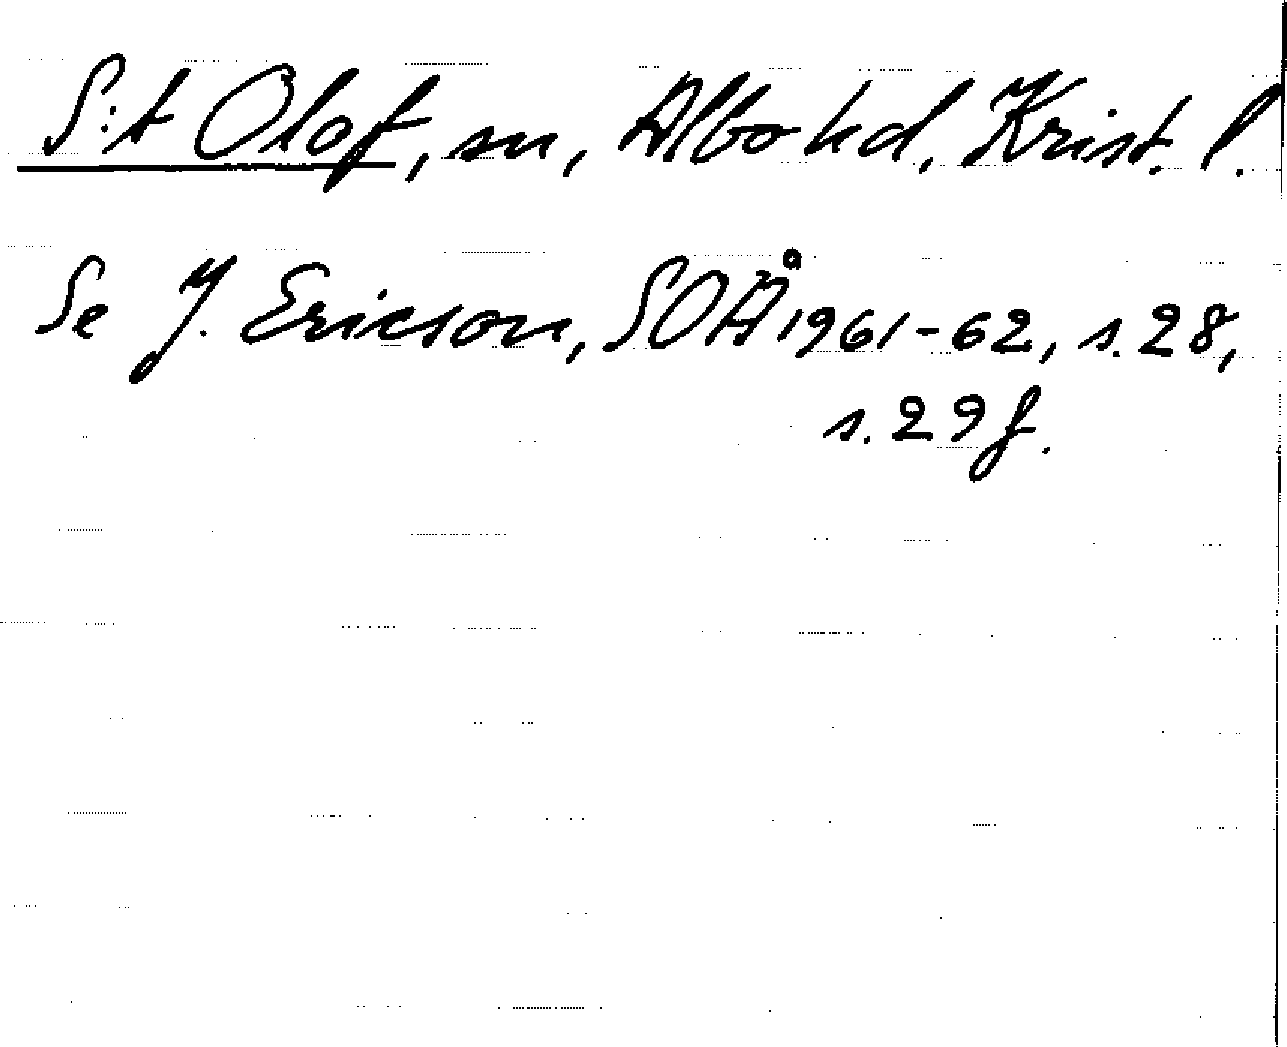 S:t Olof, sn, Albo hd, Krist. l.
Se J. Ericson, SOÅ 1961-62, s. 28,
s. 29 f.